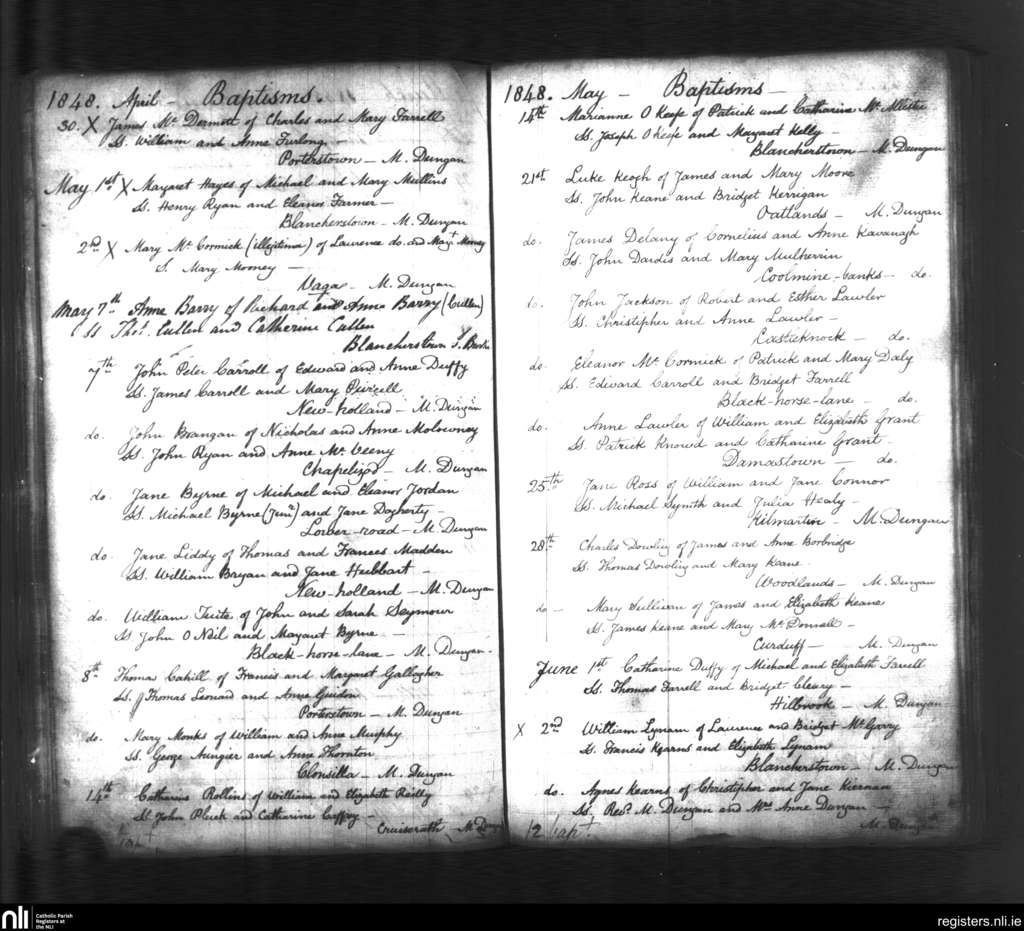 1848. April – Baptisms.
30. X James Mc Dermott of Charles and Mary Farrell
Ss. William and Anne Furlong –
Porterstown – M. Dungan
May 1st X Margaret Hayes of Michael and Mary Mullins
Ss. Henry Ryan and Eleanor Farmer –
Blancherstown – M. Dungan
2nd X Mary Mc Cormick (illegitima) of Laurence do. and Mary Mooney
S. Mary Mooney –
Vaga – M. Dungan
May 7th Anne Barry of Richard and Anne Barry (Cullen)
Ss Thos. Cullen and Catherine Cullen
Blancherstown J.
7th John Peter Carroll of Edward and Anne Duffy
Ss. James Carroll and Mary Purcell
New-holland – M. Dungan
do. John Brangan of Nicholas and Anne Molowney
Ss. John Ryan and Anne Mc Veeny
Chapelizod – M. Dungan
do. Jane Byrne of Michael and Eleanor Jordan
Ss. Michael Byrne (Junr) and Jane Dogherty –
Lower-road – M. Dungan
do. Jane Liddy of Thomas and Frances Madden
Ss. William Bryan and Jane Hubbart –
New-holland – M. Dungan
do. William Tuite of John and Sarah Seymour
Ss John O Neil and Margaret Byrne –
Black-horse-lane – M. Dungan.
8th Thomas Cahill of Francis and Margaret Gallagher
Ss. Thomas Leonard and Anne Guidon
Porterstown – M. Dungan
do. Mary Monks of William and Anne Murphy
Ss. George Aungier and Anne Thornton
Clonsilla – M. Dungan
14th Catharine Rollins of William and Elizabeth Reilly
Ss John Pluck and Catharine Caffrey –
Cruiserath – M. Dungan
1848. May – Baptisms –
14th Marianne O Keefe of Patrick and Catharine Mc Allister
Ss. Joseph O Keefe and Margaret Kelly –
Blancherstown – M. Dungan
21st Luke Keogh of James and Mary Moore
Ss. John Keane and Bridget Kerrigan
Oatlands – M. Dungan
do. James Delany of Cornelius and Anne Kavanagh
Ss. John Dardis and Mary Mulherrin
Coolmine-banks – do.
do. John Jackson of Robert and Esther Lawler
Ss. Christopher and Anne Lawler –
Castleknock – do.
do. Eleanor Mc Cormick of Patrick and Mary Daly
Ss. Edward Carroll and Bridget Farrell
Black-horse-lane – do.
do. Anne Lawler of William and Elizabeth Grant
Ss. Patrick Knowd and Catharine Grant –
Damastown – do.
25th Jane Ross of William and Jane Connor
Ss. Michael Smith and Julia Healy –
Kilmartin – M. Dungan
28th Charles Dowling of James and Anne Borbridge
Ss. Thomas Dowling and Mary Keane
Woodlands – M. Dungan
do – Mary Sullivan of James and Elizabeth Keane
Ss. James Keane and Mary Mc Donnell –
Curduff – M. Dungan
June 1st Catharine Duffy of Michael and Elizabeth Farrell
Ss. Thomas Farrell and Bridget Cleary –
Hilbrook – M. Dungan
X 2nd William Lynam of Laurence and Bridget Mc Garry
Ss. Francis Kearns and Elizabeth Lynam
Blancherstown – M. Dungan
do. Agnes Kearns of Christopher and Jane Kiernan
Ss. Revd. M. Dungan and Mrs Anne Dungan –
M. Dungan
12 Bapt
nli
Catholic Parish
Registers at
the NLI
registers.nli.ie